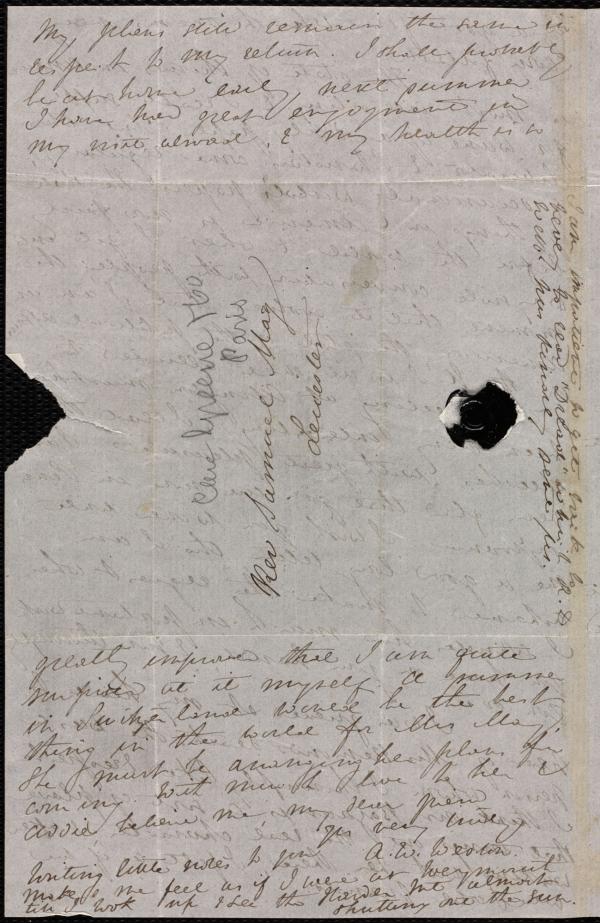 My plans still remain the same in
respect to my return. I shall probably
be at home early next summer
I have had great enjoyment in
my visit abroad, & my health is so
I am impatient to get back to
love to dear
Rev Samuel May
Leicester
Paris
greatly improved that I am quite
surprised at it myself. A summer
in Switzerland would be the best
thing in the world for Mrs May,
she must be arranging her plans for
coming. With much love to her &
believe me, my dear friend
yrs very truly
A. W. Weston.
Writing little notes to you
makes me feel as if I were at Weymouth
till I look up & see the almost
shutting out the sun.